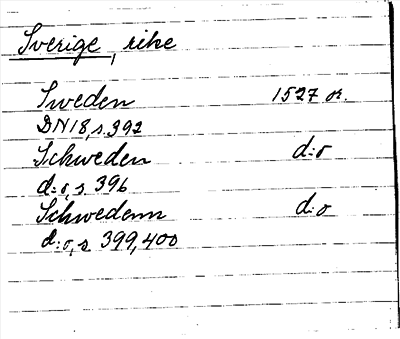 Sverige, rike
Sweden 1527 or.
DN18, s. 392
Schweden d:o
d:o, s. 396
Schwedenn d:o
d:o, s. 399, 400